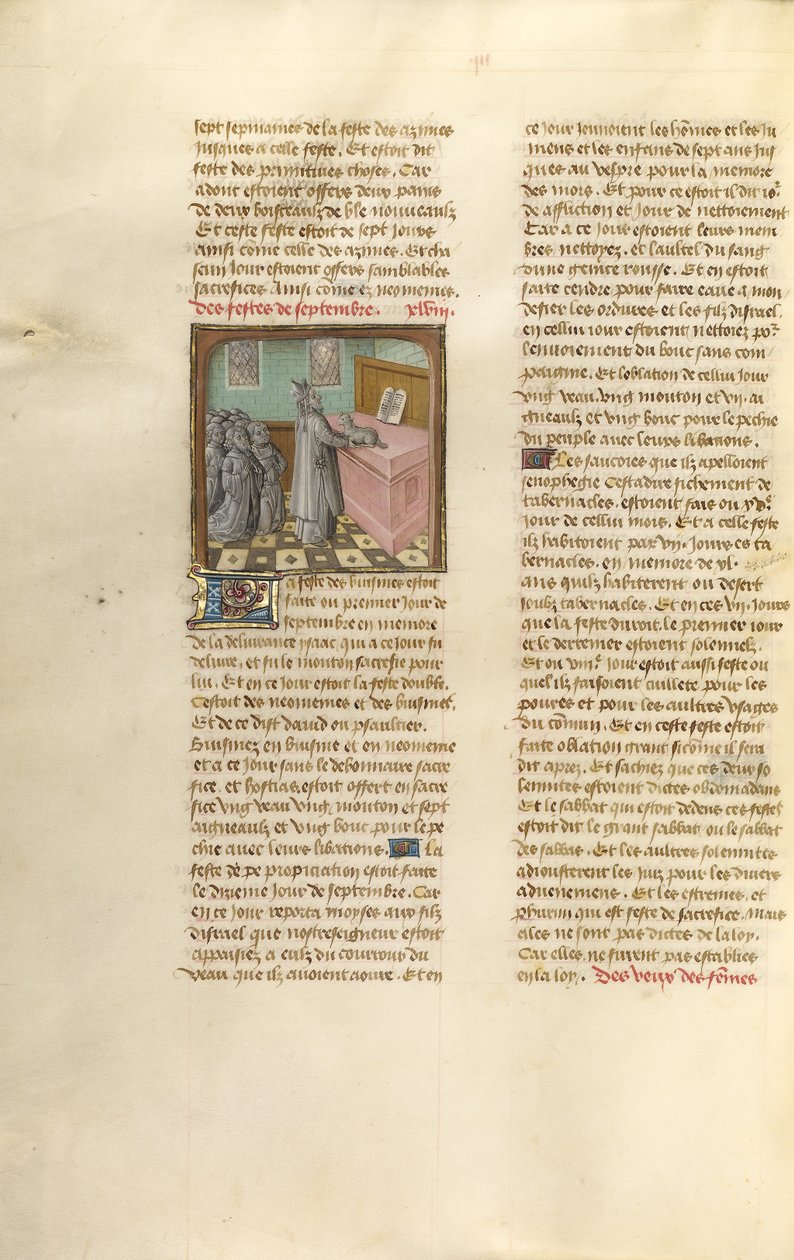 sept sepmaines de la feste des azimes
jusques a celle feste. Et estoit dit
feste des primitives choses. Car
adont estoient offers deux pains
de deux boisteaulz de ble nouveaulz
Et ceste feste estoit de sept jours
ainsi come celle des azimes. Et cha
scun jour estoient offers samblables
sacrefices ainsi come ez neomenies.
Des festes de septembre. xlviii.
La feste des buisines estoit
faite ou premier jour de
septembre en memore
de la delivrance ysaac, qui a ce jour fu
delivre, et fu le mouton sacrefie pour
lui. Et en ce jour estoit la feste double.
Cestoit des neomenies et des buisines.
Et de ce dist david ou psaultier.
Buisinez en buisine et en neomenie
et a ce jour sans le debonnaire sacre
fice, et hostias, estoit offert en sacre
fice ung veau ung mouton et sept
aigneaulz et ung bouc pour le pe
chie avec leurs libations. La
feste de pe propiciation estoit faite
le dizieme jour de septembre. Car
en ce jour reporta moyses aux filz
disrael que nostreseigneur estoit
appaisiez a eulz du courroux du
veau que ilz avoient aoure. Et en
ce jour jeunoient les hommes et les ju
mens et les enfans de sept ans jus
ques au vespre pour la memore
des mors. Et pour ce estoit il dit jor
de affliction et jour de nettoiement
Car a ce jour estoient leurs mem
bres nettoyez. et lautel du sang
dune genice rousse. Et en estoit
faite cendre pour faire eaue a mon
defier les ordures et les filz disrael.
en cellui jour estoient nettoiez por
lenvoiement du bouc sans com
paignie. Et loblation de cellui jour
ung veau. ung mouton et vii. ai
gneaulz et ung bouc pour le pechie
du peuple avec leurs libations.
Les saucoies que ilz apelloient
senophegie Cestadire fichement de
tabernacles. estoient fais ou xve
jour de cellui mois. Et a celle feste
ilz habitoient par vii. jours es ta
bernacles. en memore de xl.
ans quilz habiterent ou desert
soubz tabernacles. Et en ces vii. jours
que la feste duroit. le premier jour
et le derrenier estoient solennelz.
Et ou viiie jour estoit aussi feste ou
quel ilz faisoient cuillete pour les
poures et pour les aultres usages
du comun. Et en ceste feste estoit
faite oblation grant si come il sera
dit aprez. Et sachiez que ces deux so
lennites estoient dictes obdomadans
Et le sabbat qui estoit dedens ces festes
estoit dit le grant sabbat ou le sabbat
des sabbas. Et les aultres solennites
adjousterent les juiz pour les divers
advenemens. Et les estremes, et
phurim qui est feste de sacrefice. Mais
elles ne sont pas dictes de la loy.
Car elles ne furent pas establies
en la loy. Des veux des femes